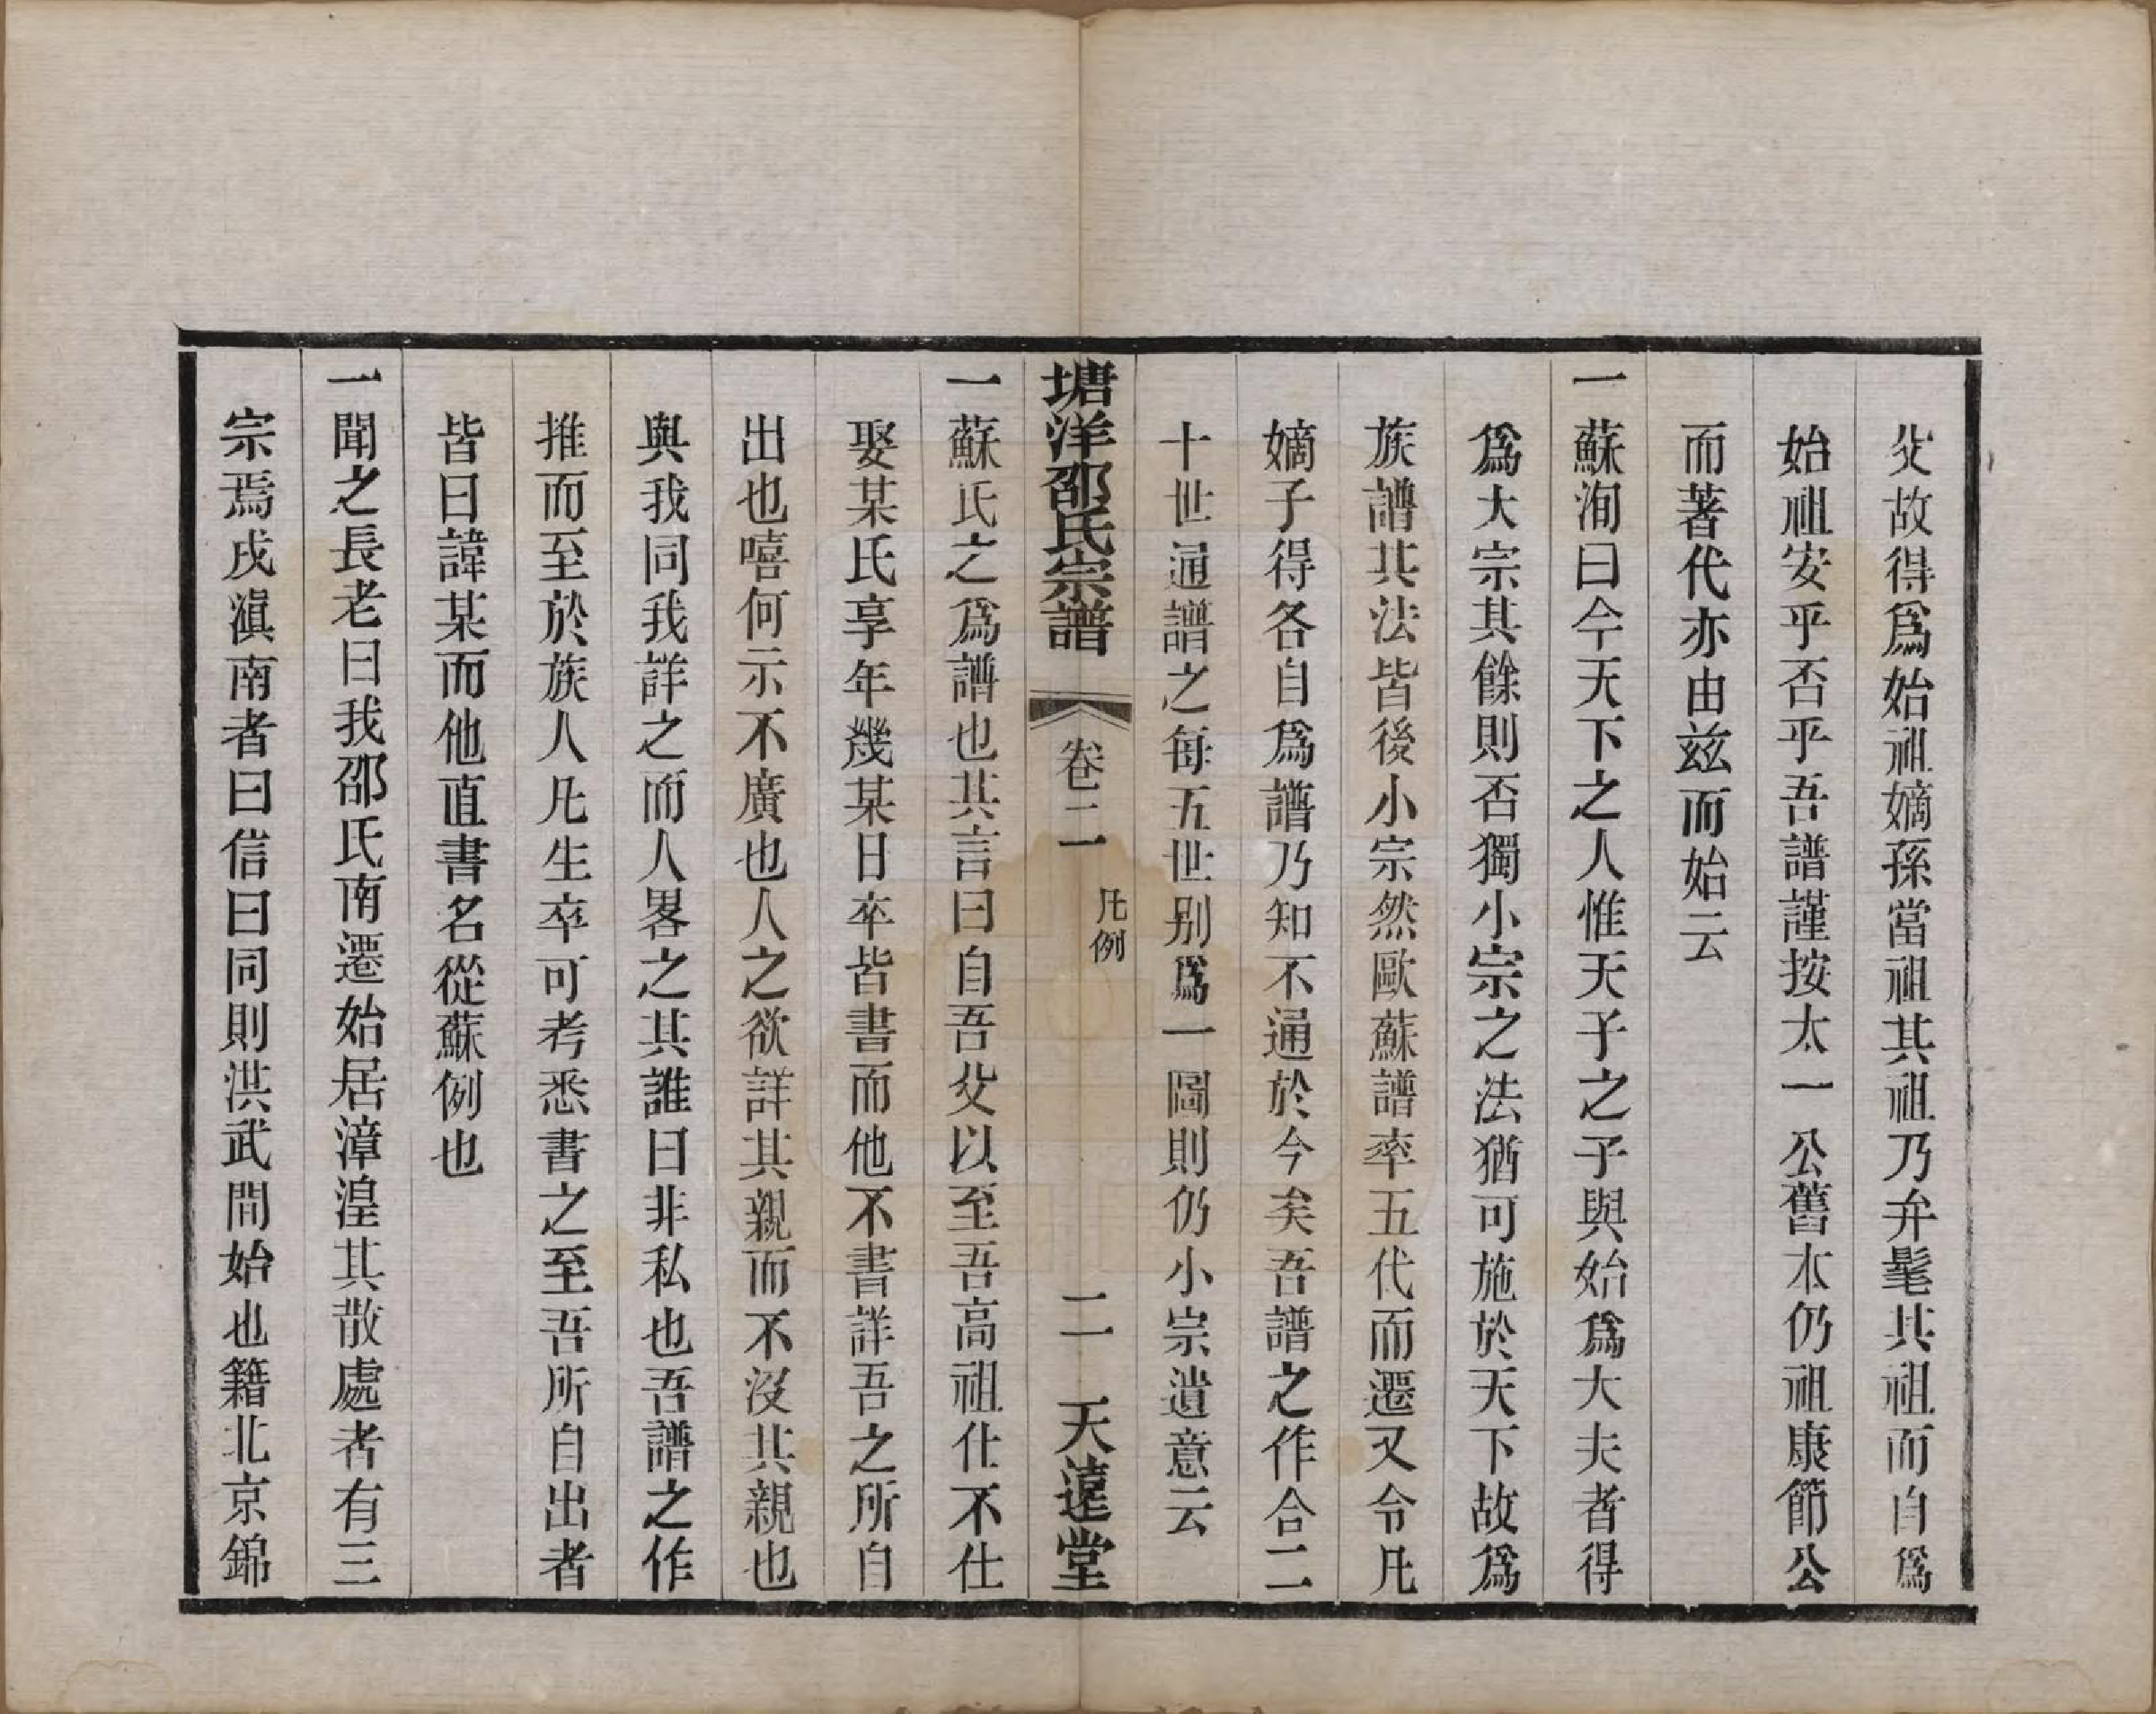 父故得爲始祖嫡孫當祖其祖乃弁髦其祖而自爲
始祖安乎否乎吾譜謹按太一公舊本仍祖康節公
而著代亦由兹而始云
一蘇洵曰今天下之人惟天子之子與始爲大夫者得
爲大宗其餘則否獨小宗之法猶可施於天下故爲
族譜其法皆後小宗然歐蘇譜率五代而遷又令凡
嫡子得各自爲譜乃知不通於今矣吾譜之作合二
十世通譜之每五世别爲一圖則仍小宗遺意云
塘洋邵氏宗譜 卷二 凡例 二 天遠堂
一蘇氏之爲譜也其言曰自吾父以至吾高祖仕不仕
娶某氏享年幾某日卒皆書而他不書詳吾之所自
出也嘻何示不廣也人之欲詳其親而不沒其親也
與我同我詳之而人畧之其誰曰非私也吾譜之作
推而至於族人凡生卒可考悉書之至吾所自出者
皆曰諱某而他直書名從蘇例也
一聞之長老曰我邵氏南遷始居漳湟其散處者有三
宗焉戍滇南者曰信曰同則洪武間始也籍北京錦